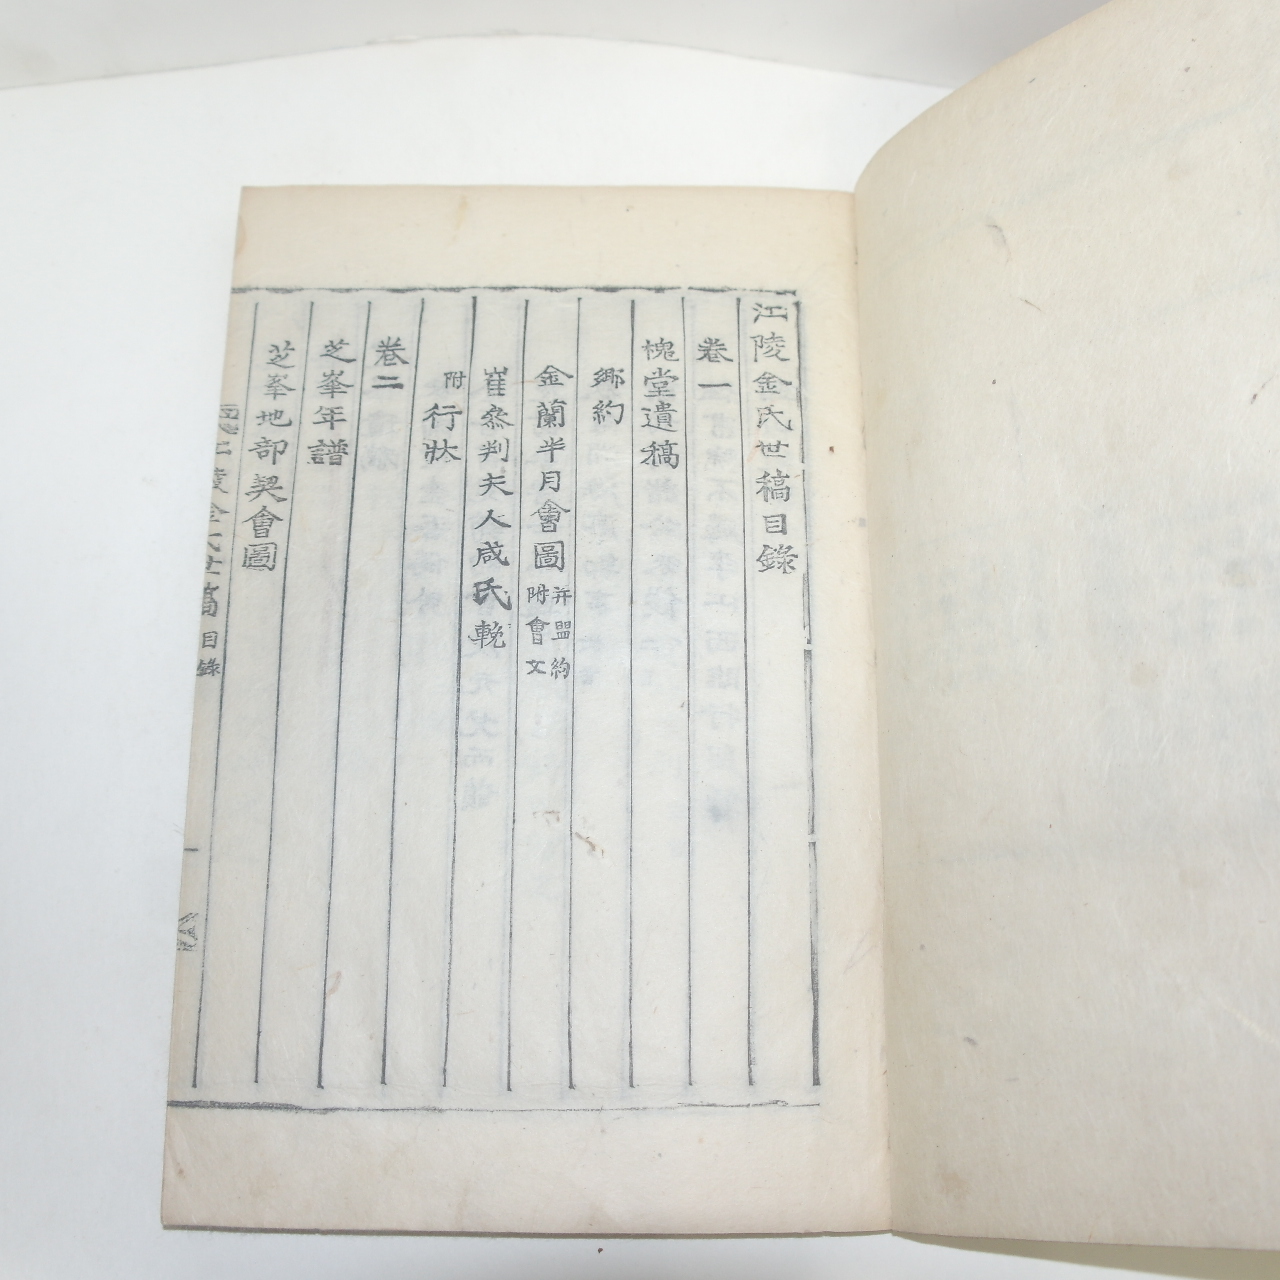 江陵金氏世稿目錄
卷一
槐堂遺稿
鄉約
金蘭半月會圖 并盟約 附會文
崔叅判夫人咸氏輓
附行狀
卷二
芝峯年譜
芝峯地部契會圖
江陵金氏世稿 目錄 一